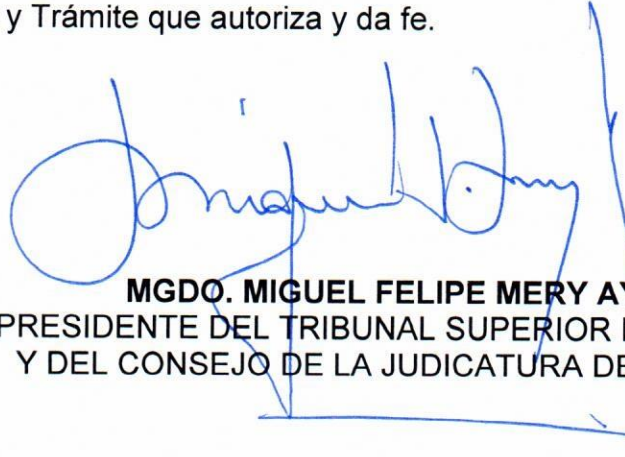 y Trámite que autoriza y da fe.
MGDO. MIGUEL FELIPE MERY AY
PRESIDENTE DEL TRIBUNAL SUPERIOR
Y DEL CONSEJO DE LA JUDICATURA DE